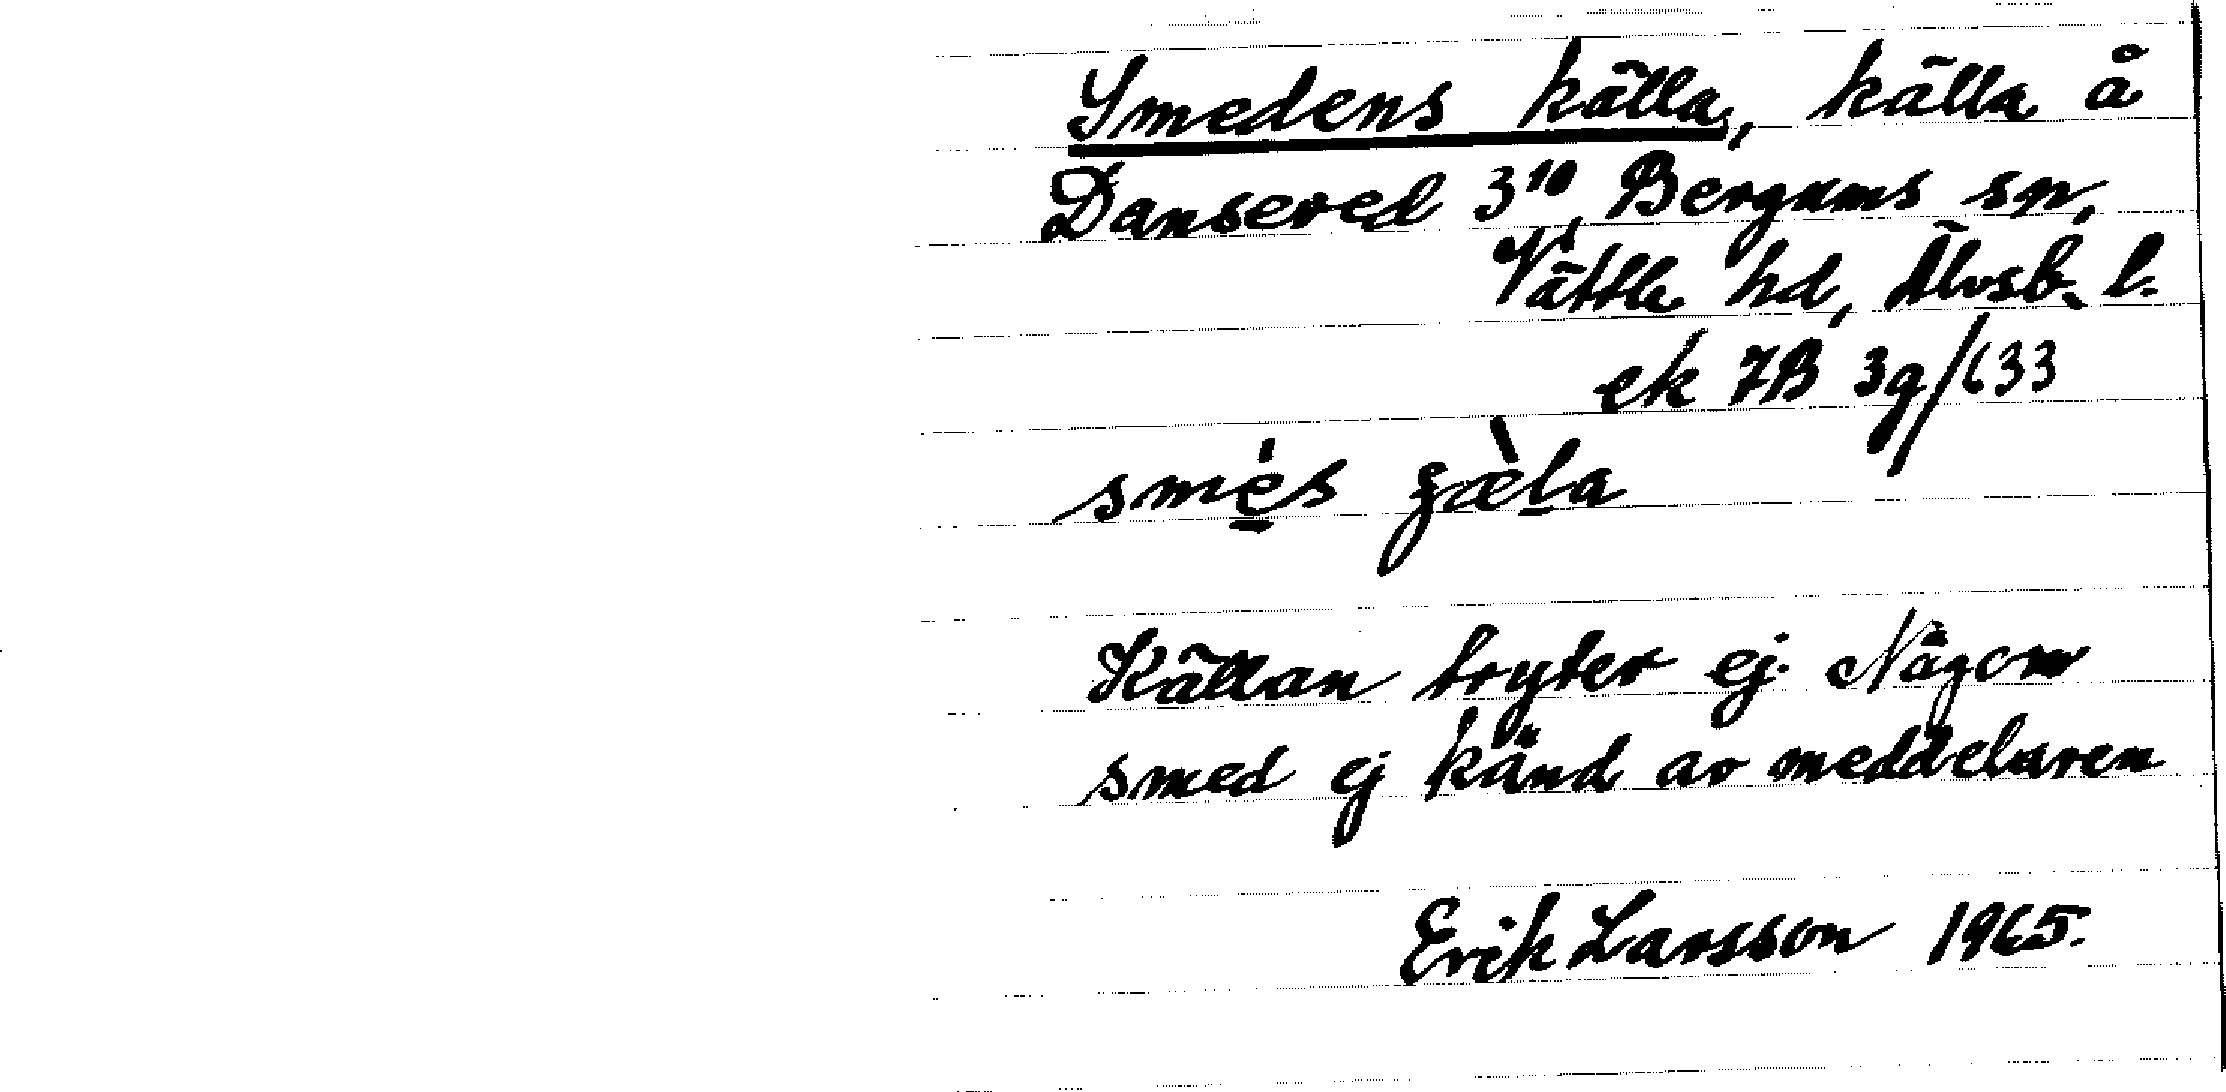 Smedens källa, källa å
Dansered 3¹⁰, Bergums sn,
Vättle hd, Älvsb. l.
ek 7B 3g/633
smés
Källan tryter ej. Någon
smed ej känd av meddelaren
Erik Larsson 1965.